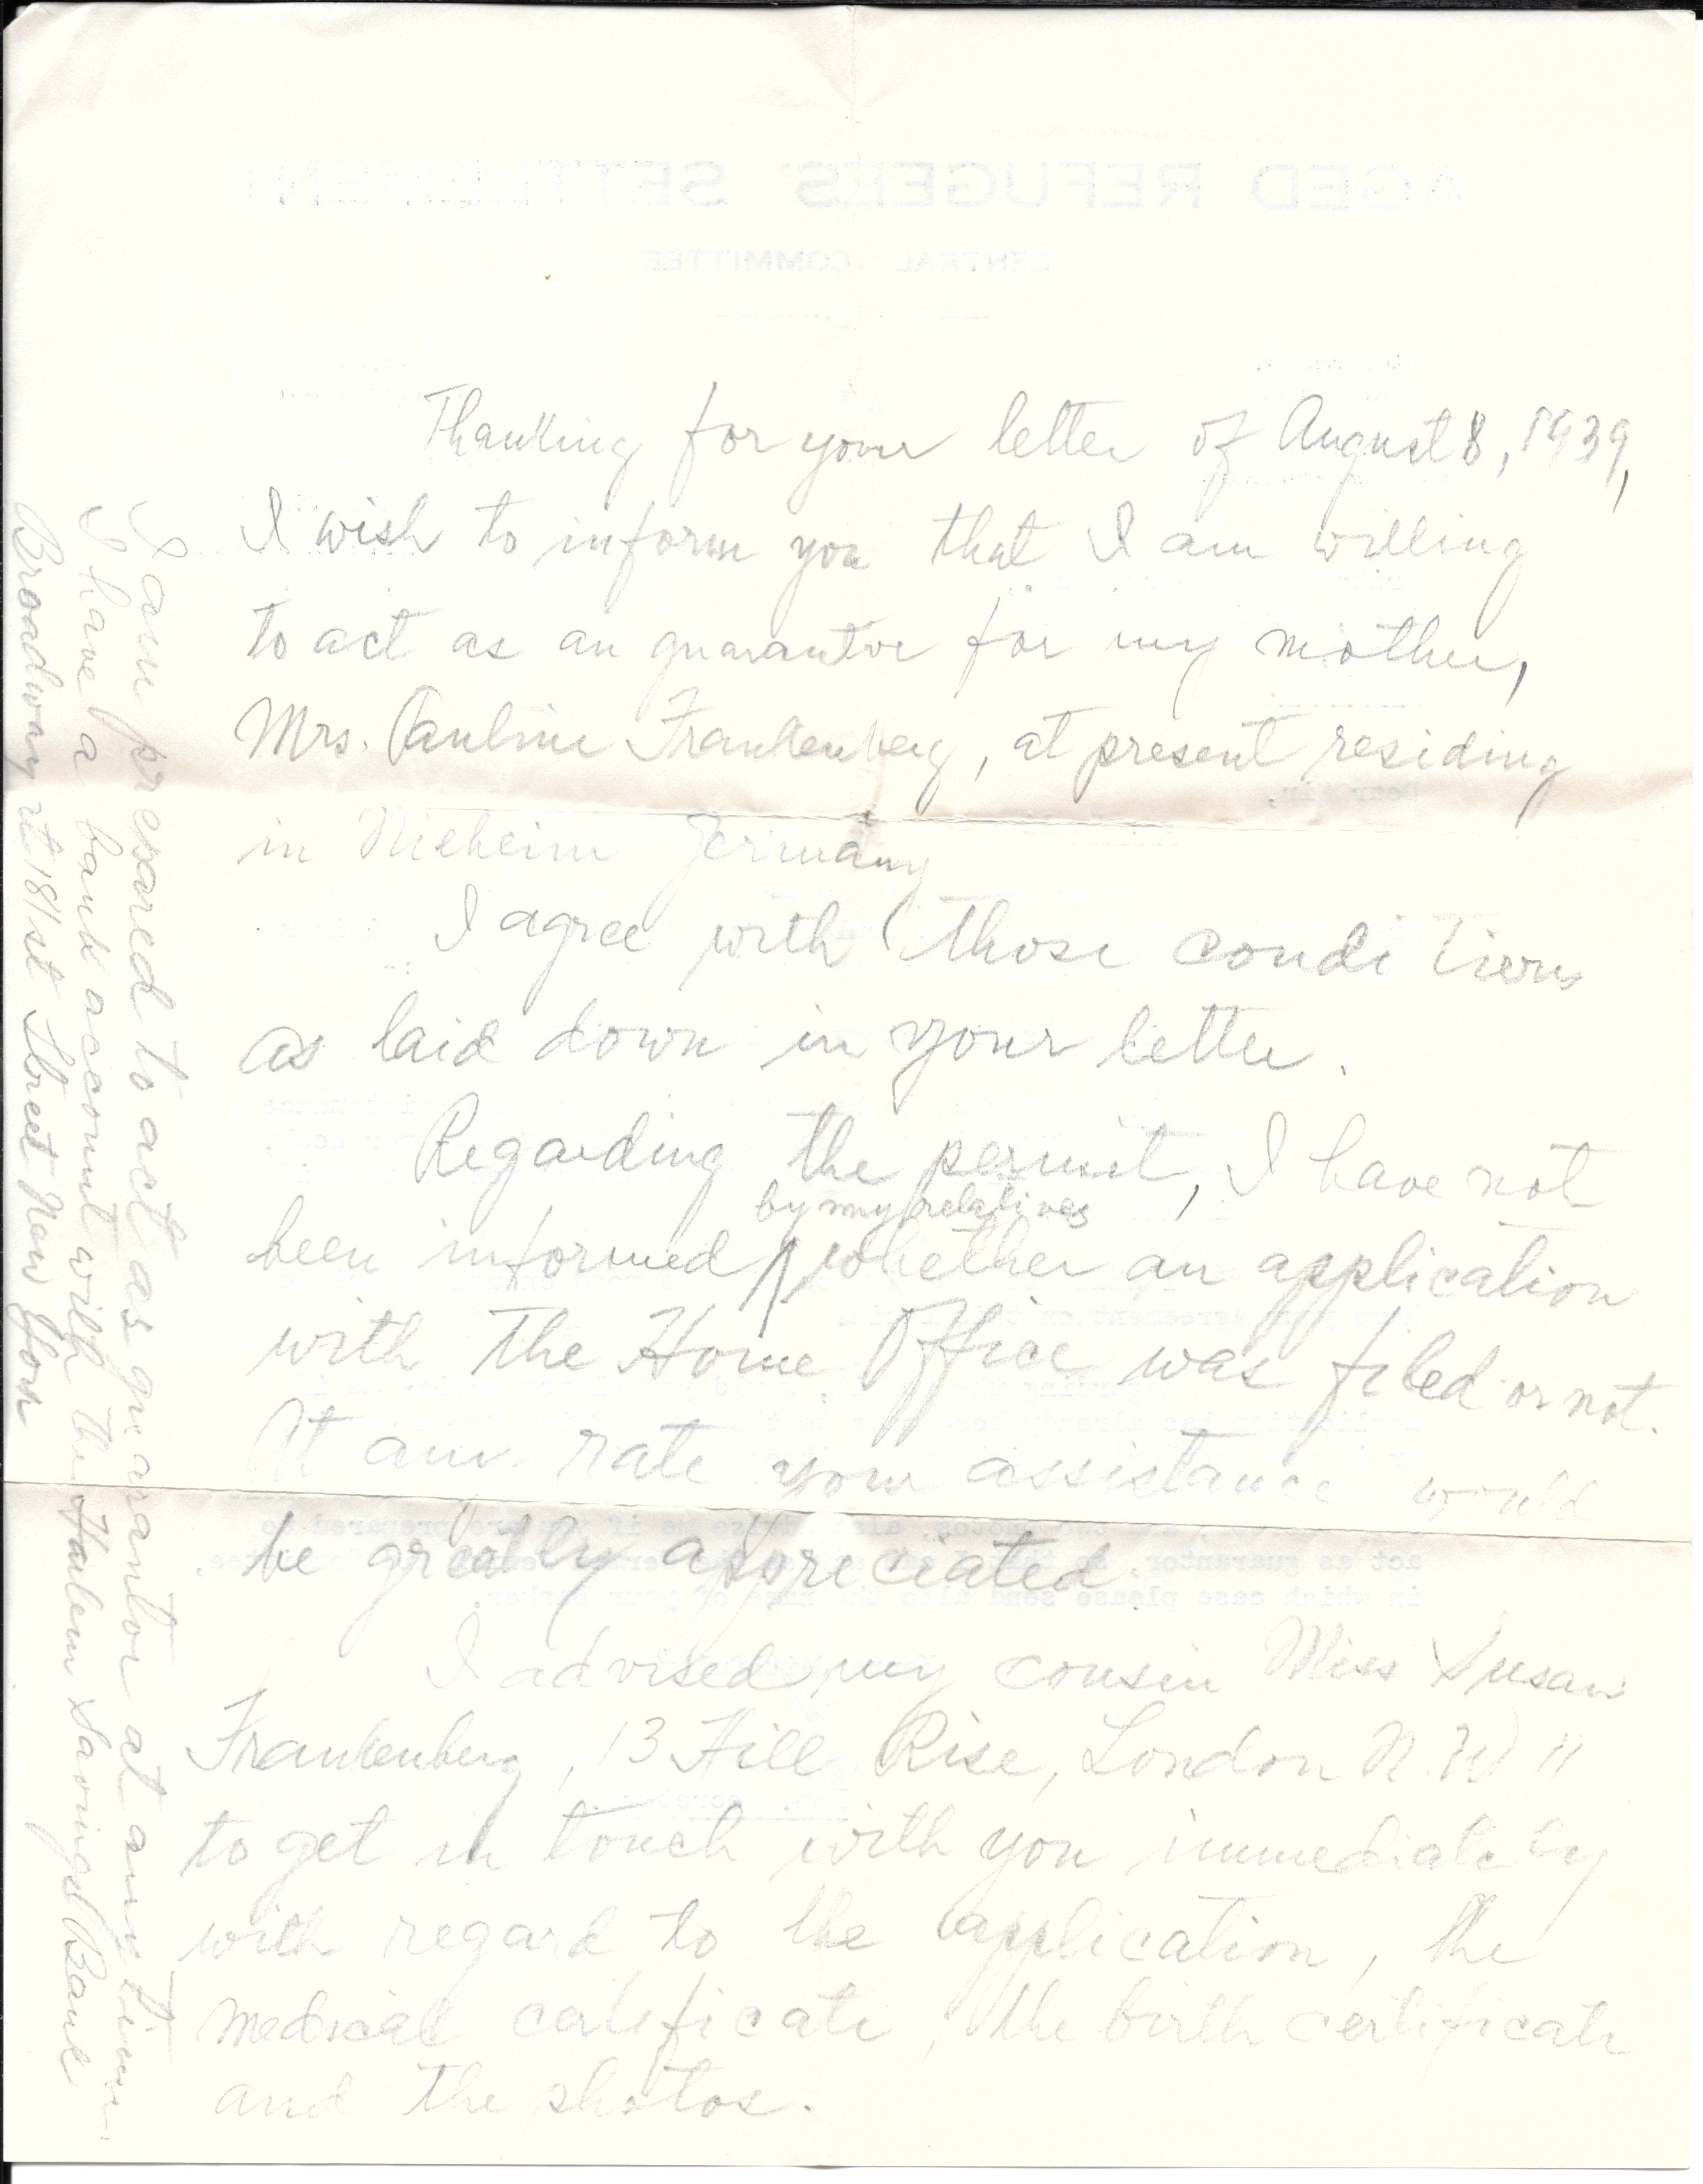 AGED REFUGEES' SETTLEMENT
CENTRAL COMMITTEE
Thanking for your letter of August 8, 1939,
I wish to inform you that I am willing
to act as an guarantor for my mother,
Mrs. Pauline Frankenberg, at present residing
Dear Sir,
in Nieheim Germany
I agree with those conditions
as laid down in your letter.
Regarding the permit, I have not
by my relatives
been informed whether an application
with the Home Office was filed or not.
At any rate your assistance would
be greatly appreciated.
act as guarantor,
in which case please send also the name of your banker.
I advised my cousin Miss Susan
Frankenberg, 13 Hill Rise, London N.W 11
to get in touch with you immediately
with regard to the application, the
medical certificate, the birth certificate
and the photos.
I am prepared to act as guarantor at any time.
I have a bank account with the Harlem Savings Bank
Broadway at 181st Street New York